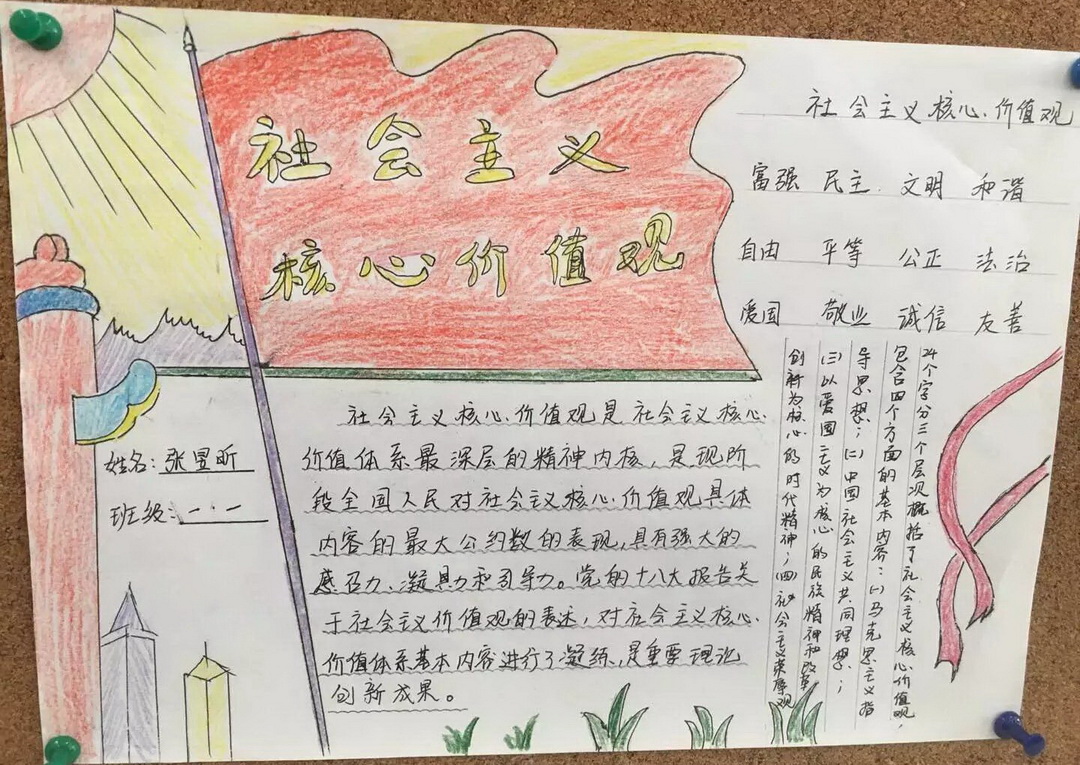 社会主义
核心价值观
社会主义核心价值观
富强 民主 文明 和谐
自由 平等 公正 法治
爱国 敬业 诚信 友善
24个字分三个层次概括了社会主义核心价值观,
包含四个方面的基本内容:(一)马克思主义指
导思想;(二)中国社会主义共同理想;
(三)以爱国主义为核心的民族精神和改革
创新为核心的时代精神;(四)社会主义荣辱观
姓名:张昱昕
班级:一·一
社会主义核心价值观是社会主义核心
价值体系最深层的精神内核,是现阶
段全国人民对社会主义核心价值观具体
内容的最大公约数的表现,具有强大的
感召力、凝具力和引导力。党的十八大报告关
于社会主义价值观的表述,对社会主义核心
价值体系基本内容进行了凝练,是重要理论
创新成果。